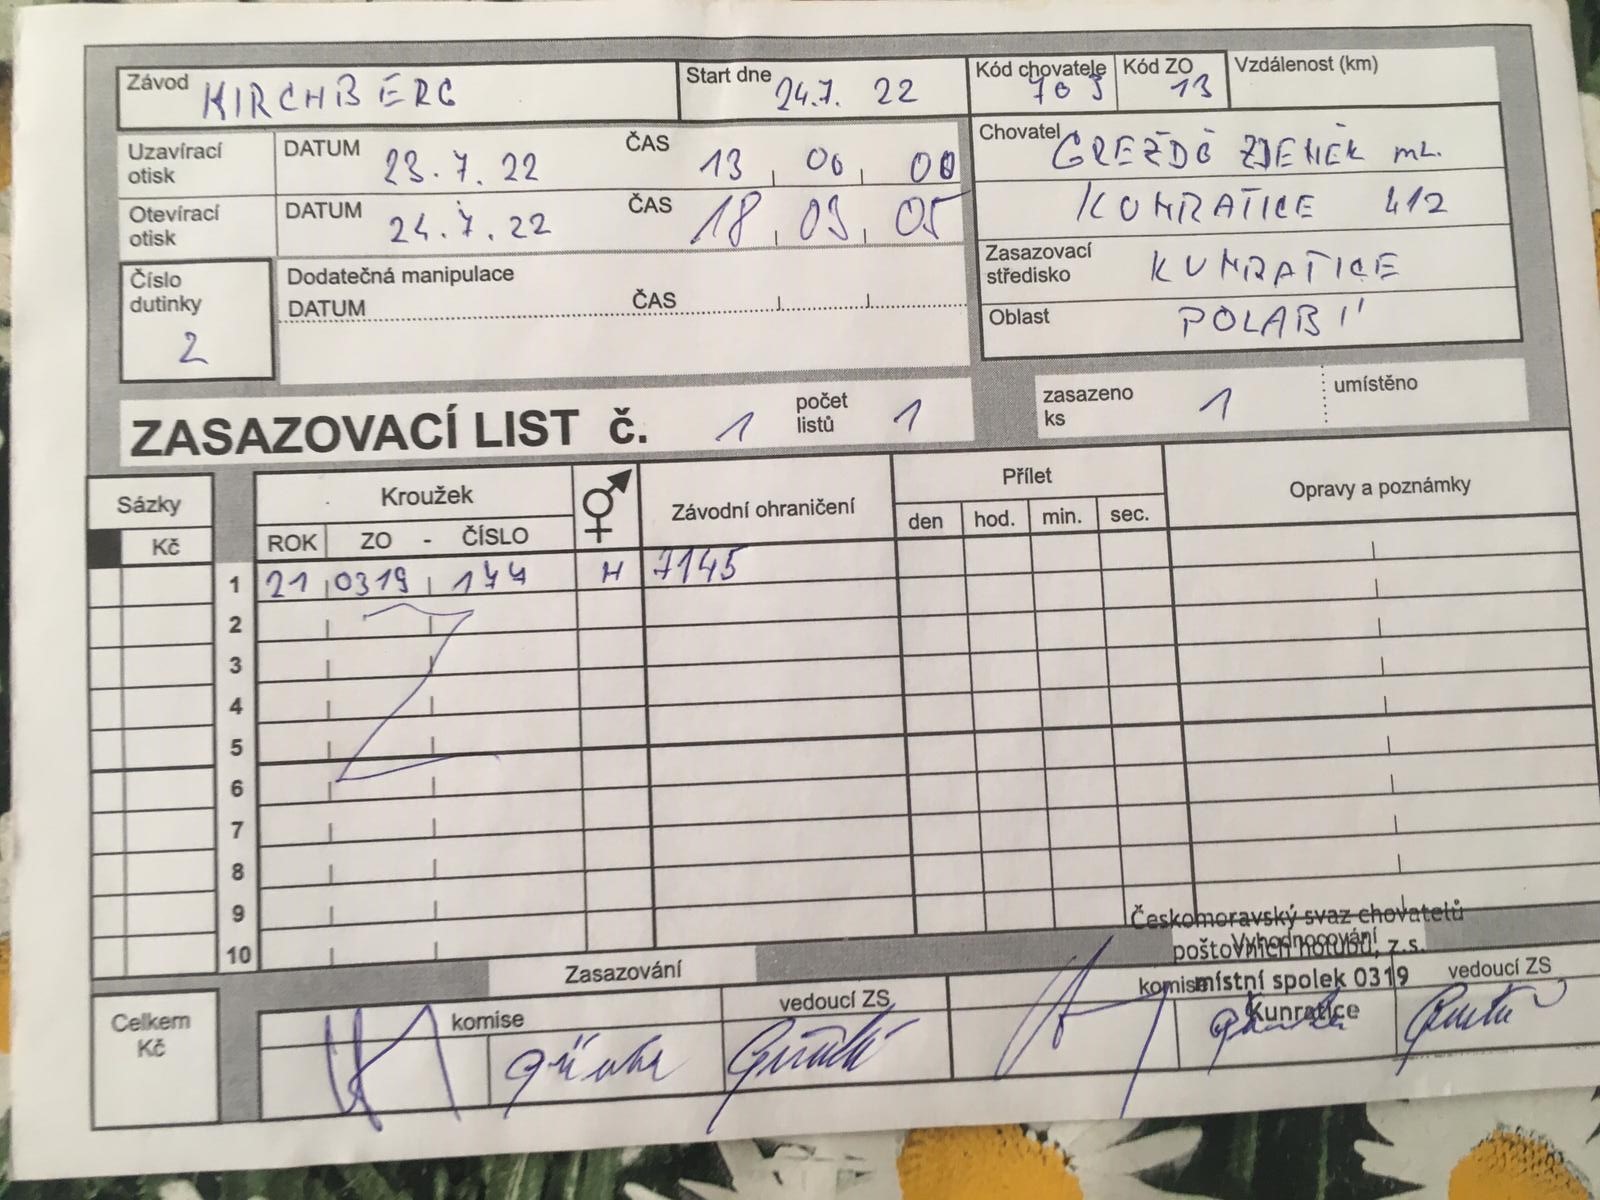 Závod KIRCHBERG Start dne 24.7. 22 Kód chovatele 703 Kód ZO 13 Vzdálenost (km)
Uzavírací otisk DATUM 23.7.22 ČAS 13 00 00
Chovatel GREŽDO ZDENĚK ML.
Otevírací otisk DATUM 24.7.22 ČAS 18 09 05
KUNRATICE 412
Číslo dutinky 2
Dodatečná manipulace
DATUM ČAS
Zasazovací středisko KUNRATICE
Oblast POLABÍ
ZASAZOVACÍ LIST č. 1 počet listů 1 zasazeno ks 1 umístěno
Sázky Kroužek Závodní ohraničení Přílet Opravy a poznámky
Kč ROK ZO - ČÍSLO den hod. min. sec.
1 21 0319 144 H 7145
2
3
4
5
6
7
8
9
10
Českomoravský svaz chovatelů
poštovních holubů, z.s.
Vyhodnocování
místní spolek 0319
Kunratice
Zasazování
Celkem Kč
komise vedoucí ZS komise vedoucí ZS